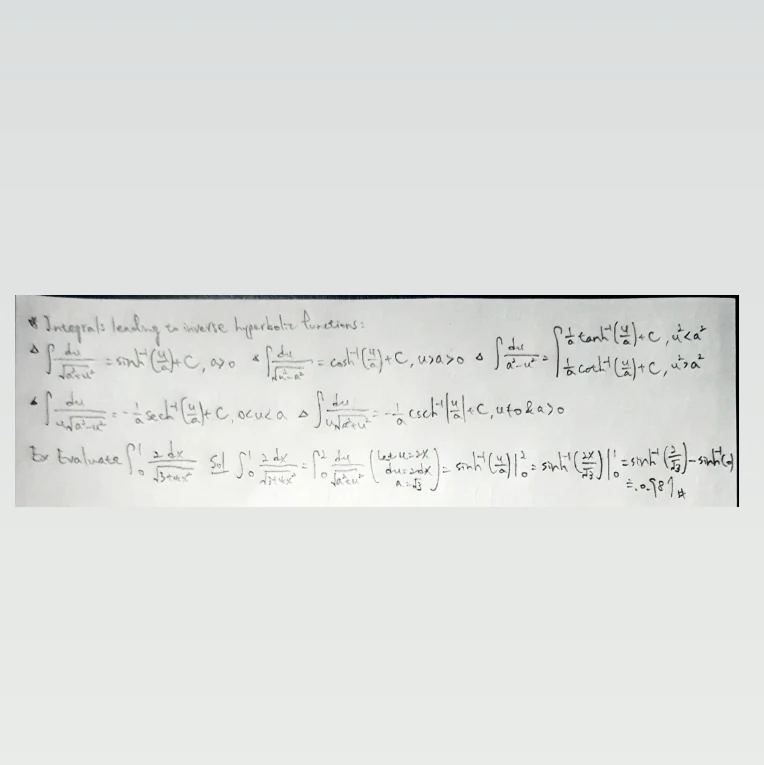 ※ Integrals leading to inverse hyperbolic functions:
△ ∫ du/√(a²+u²) = sinh⁻¹(u/a)+C, a>0 △ ∫ du/√(u²-a²) = cosh⁻¹(u/a)+C, u>a>0 △ ∫ du/(a²-u²) = { 1/a tanh⁻¹(u/a)+C, u²<a² ; 1/a coth⁻¹(u/a)+C, u²>a²
△ ∫ du/(u√(a²-u²)) = -1/a sech⁻¹(u/a)+C, 0<u<a △ ∫ du/(u√(a²+u²)) = -1/a csch⁻¹|u/a|+C, u≠0 & a>0
Ex Evaluate ∫₀¹ 2dx/√(3+4x²) Sol ∫₀¹ 2dx/√(3+4x²) = ∫₀² du/√(a²+u²) (let u=2x du=2dx a=√3) = sinh⁻¹(u/a)|₀² = sinh⁻¹(2x/√3)|₀¹ = sinh⁻¹(2/√3) - sinh⁻¹(0)
≐ 0.987 #